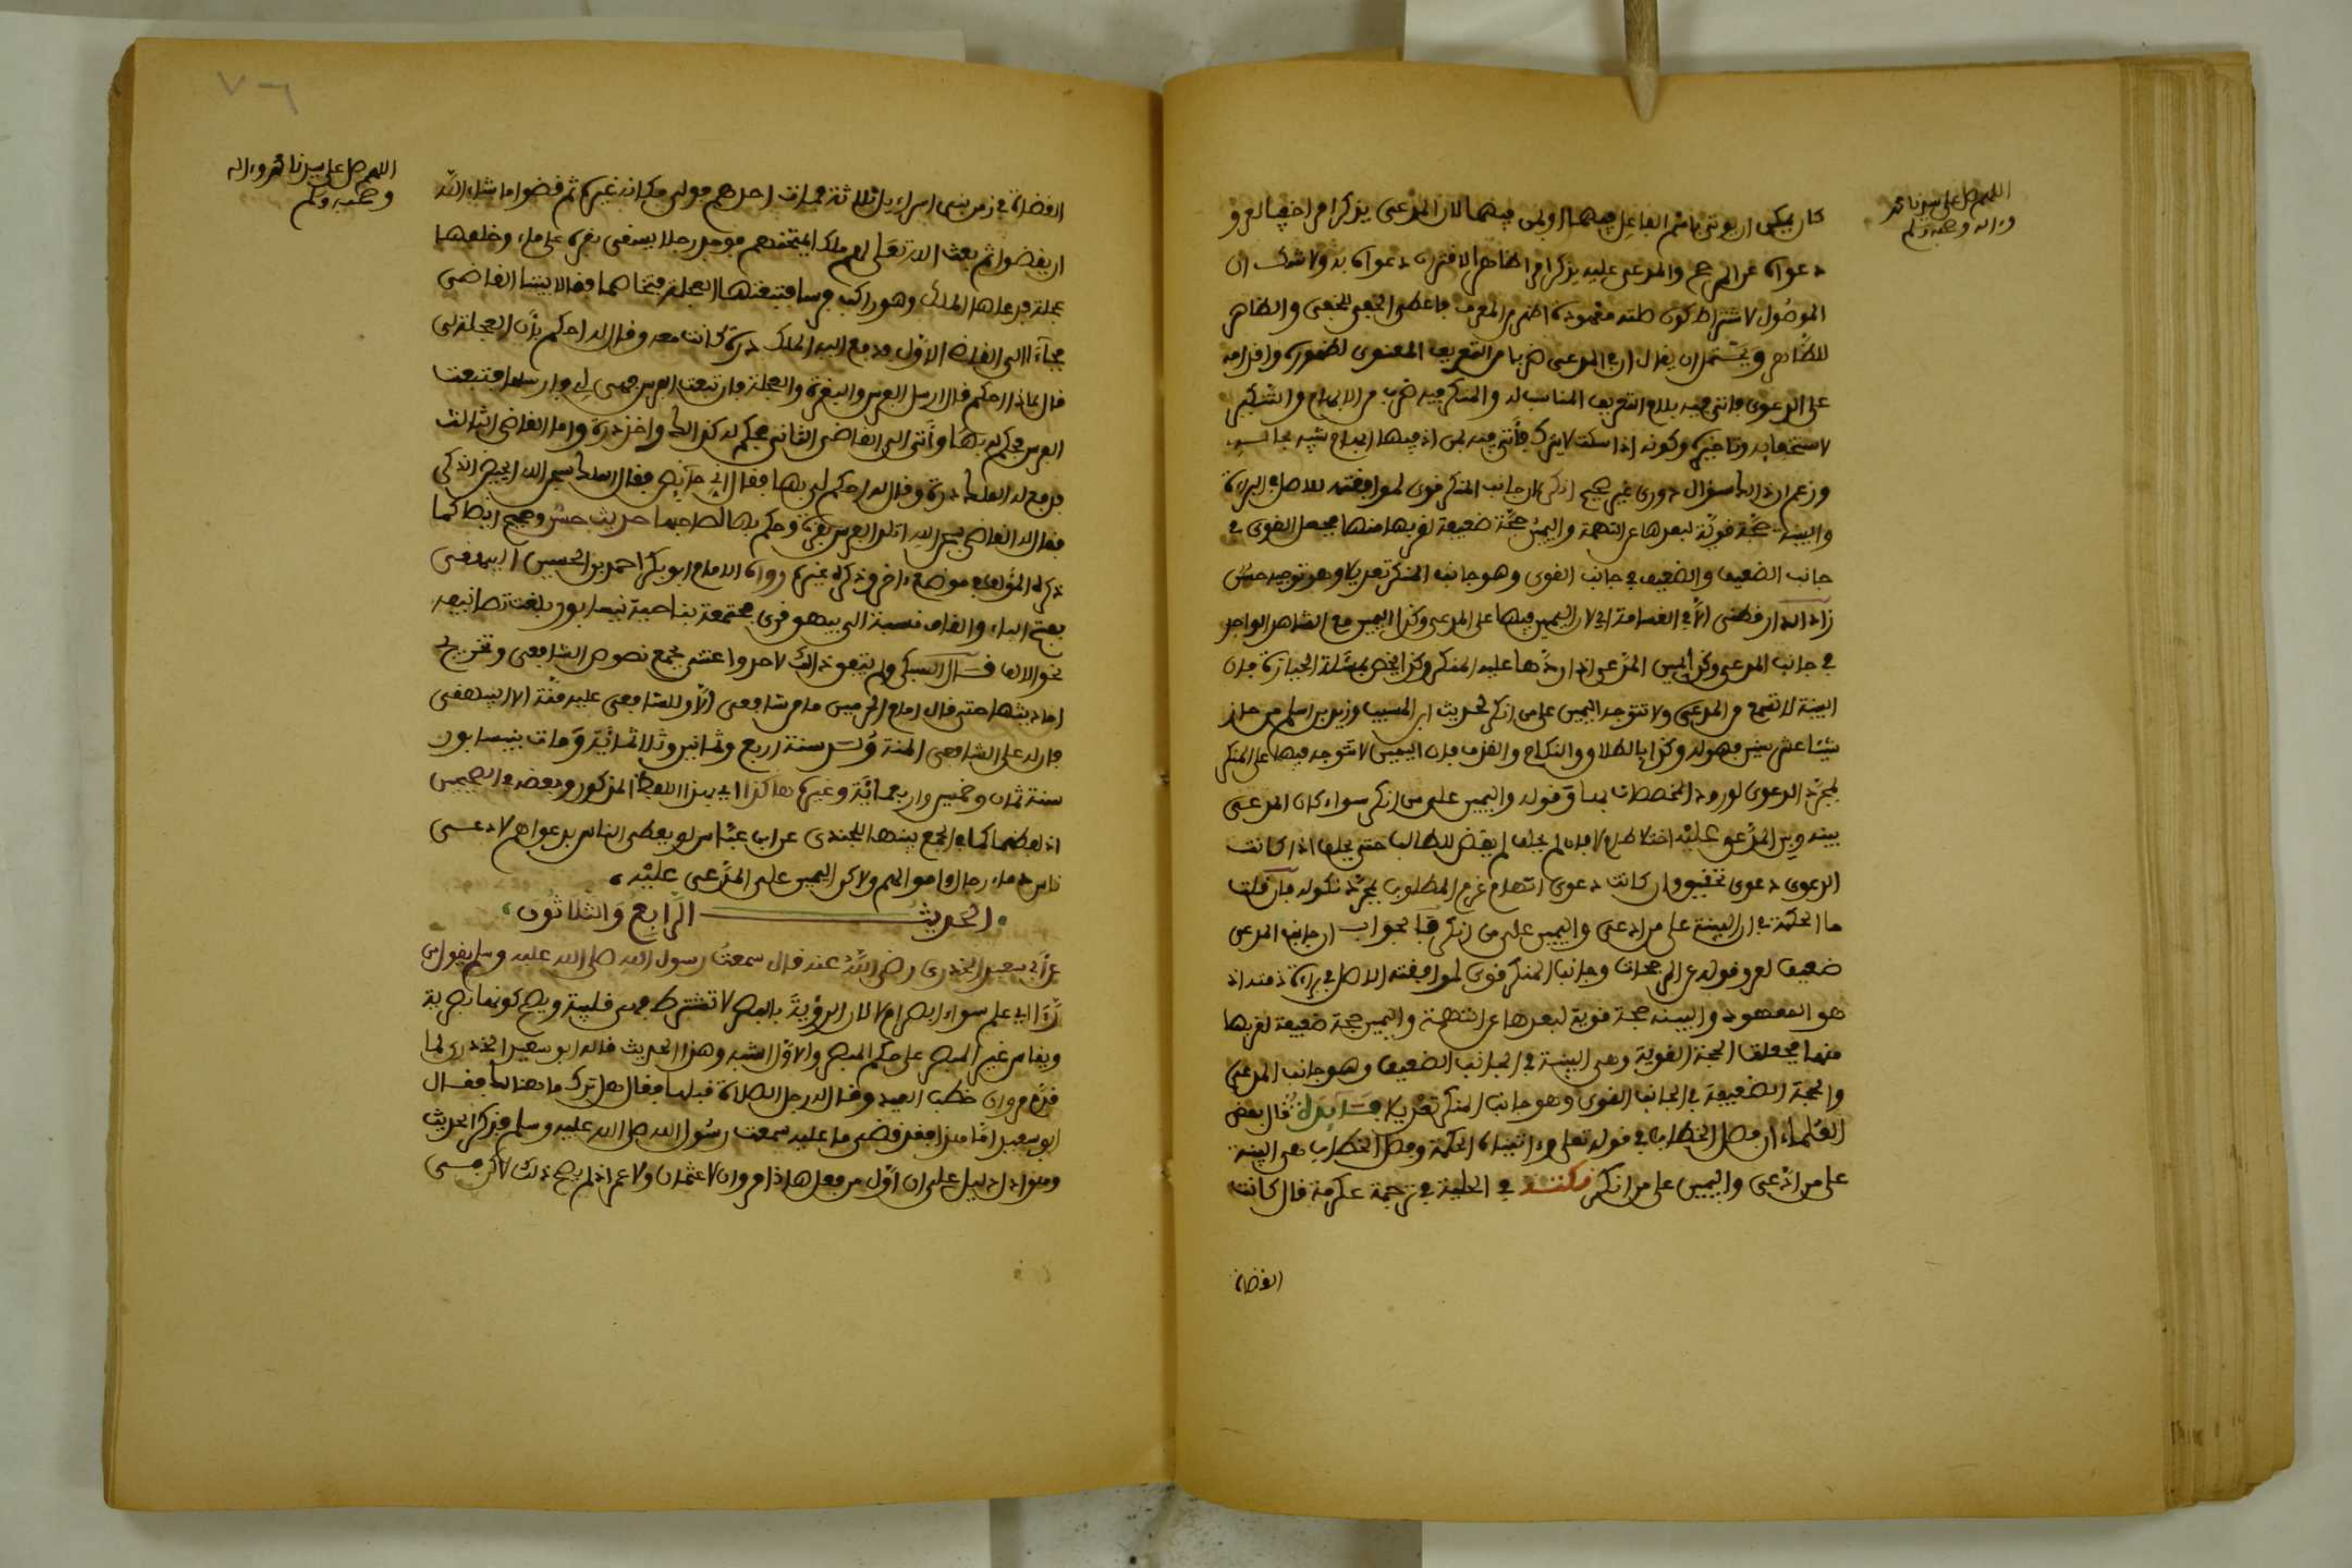 اللهم صل على سيدنا محمد
وءاله وصحبه وسلم
كان يمكن ان يوتى باسم الفاعل فيهما او بمن فيهما لان المدعى يذكر امرا خفيا لعرو
دعواه عن المرجح والمدعى عليه يذكر امرا ظاهرا لاقتران دعواه به ولا شك ان
الموصول لاشتراط كون صلته معهودة اظهر من المعرف فاعطى الخفي للخفي والظاهر
للظاهر ويحتمل ان يقال ان في المدعى ضربا من التعريف المعنوي لظهوره واقدامه
على الدعوى فاتى فيه بلام التعريف المناسب له والمنكر فيه ضرب من الابهام والتنكير
لاستخفايه وتاخيره وكونه اذا سكت لا يترك فأتى فيه بمن اذ فيها ابهام شبيه بحاله
وزعم ان ذلك سؤال دوري غير صحيح اذ كان جانب المنكر قوى لموافقته للاصل في البراءة
والبينة حجة قوية لبعدها عن التهمة واليمين حجة ضعيفة لقربها منها فجعل القوى في
جانب الضعيف والضعيف في جانب القوى وهو جانب المنكر تعديلا وهو توجيه حسن
زاد الدارقطنى الا في القسامة اى لان اليمين فيها على المدعى وكذا اليمين مع الشاهد الواحد
في جانب المدعى وكذا يمين المدعى اذا ردها عليه المنكر وكذا يخص بمسئلة الحيازة فان
البينة لا تسمع من المدعى ولا تتوجه اليمين على من انكر لحديث ابن المسيب وزيد بن اسلم من حاز
شيئا عشر سنين فهو له وكذا بالطلاق والنكاح والقذف فان اليمين لا تتوجه فيها على المنكر
لمجرد الدعوى لورود المخصصات بها وقوله واليمين على من انكر سواء كان المدعى
بينه وبين المدعو عليه اختلاط ام لا فان لم يحلف لم يقض للطالب حتى يحلف اذا كانت
الدعوى دعوى تحقيق وان كانت دعوى اتهام غرم المطلوب بمجرد نكوله فان قلت
ما الحكمة في ان البينة على من ادعى واليمين على من انكر فالجواب ان جانب المدعى
ضعيف لعرو قوله عن المرجحات وجانب المنكر قوى لموافقته للاصل في براءة ذمته اذ
هو المعهود والبينة حجة قوية لبعدها عن التهمة واليمين حجة ضعيفة لقربها
منها فجعلت الحجة القوية وهى البينة في الجانب الضعيف وهو جانب المدعى
والحجة الضعيفة في الجانب القوى وهو جانب المنكر تعديلا فايدة قال بعض
العلماء ان فصل الخطاب في قوله تعلى وءاتيناه الحكمة وفصل الخطاب هى البينة
على من ادعى واليمين على من انكر نكتة في الحلية في ترجمة عكرمة قال كانت
القضاة
٧٦
اللهم صل على سيدنا محمد وءاله
وصحبه وسلم
القضاة في زمن بنى اسراءيل ثلاثة فمات احدهم فولى مكانه غيره ثم قضوا ما شاء الله
ان يقضوا ثم بعث الله تعلى لهم ملكا يمتحنهم فوجد رجلا يسقى بقرة على ماء وخلفها
عجلة فدعاها الملك وهو راكب فرسا فتبعتها العجلة فتخاصما فقالا بيننا القاضى
فجآءا الى القاضى الاول فدفع اليه الملك درة كانت معه وقال له احكم بأن العجلة لى
قال بماذا احكم قال ارسل الفرس والبقرة والعجلة فان تبعت الفرس فهى لى فارسلها فتبعت
الفرس فحكم له بها وأتى الى القاضى الثانى فحكم له كذلك واخذ درة واما القاضى الثالث
فدفع له الملك درة وقال له احكم لى بها فقال انى حآئض فقال الملك سبحان الله ايحيض الذكر
فقال له القاضى سبحان الله اتلد الفرس بقرة وحكم بها لصاحبها حديث حسن وصحيح ايضا كما
ذكره المؤلف في موضع ءاخر وذكره غيره رواه الامام ابو بكر احمد بن الحسين البيهقى
بفتح الباء والقاف نسبة الى بيهق قرى مجتمعة بناحية نيسابور بلغت تصانيفه
نحو الالف قال السبكى ولم يتفق ذلك لاحد واعتنى بجمع نصوص الشافعى وتخريج
احاديثها حتى قال امام الحرمين ما من شافعى الا وللشافعى عليه منة الا البيهقى
فان له على الشافعى المنة ولد سنة اربع وثمانين وثلاثمائة ومات بنيسابور
سنة ثمان وخمسين واربعمائة وغيره هاكذا اى بهذا اللفظ المذكور وبعضه في الصحيحين
اذ لفظهما كما في الجمع بينهما للجندى عن ابن عباس لو يعطى الناس بدعواهم لادعى
ناس دماء رجال واموالهم ولاكن اليمين على المدعى عليه
الحديث الرابع والثلاثون
عن أبى سعيد الخدرى رضى الله عنه قال سمعت رسول الله صلى الله عليه وسلم يقول من
رأى اى علم سواء ابصر ام لا لان الرؤية بالبصر لا تشترط فهى قلبية ويصح كونها بصرية
ويقاس غير المبصر على حكم المبصر والاول اشبه وهذا الحديث قاله ابو سعيد الخدرى لما
قدم مروان خطب العيد وقال له رجل الصلاة قبلها فقال له ترك ما هنالك فقال
ابو سعيد اما هذا فقد قضى ما عليه سمعت رسول الله صلى الله عليه وسلم فذكر الحديث
وهو ادل دليل على ان اول من فعل هاذا مروان لا عثمان ولا عمر اذ لم يصح ذلك لاكن